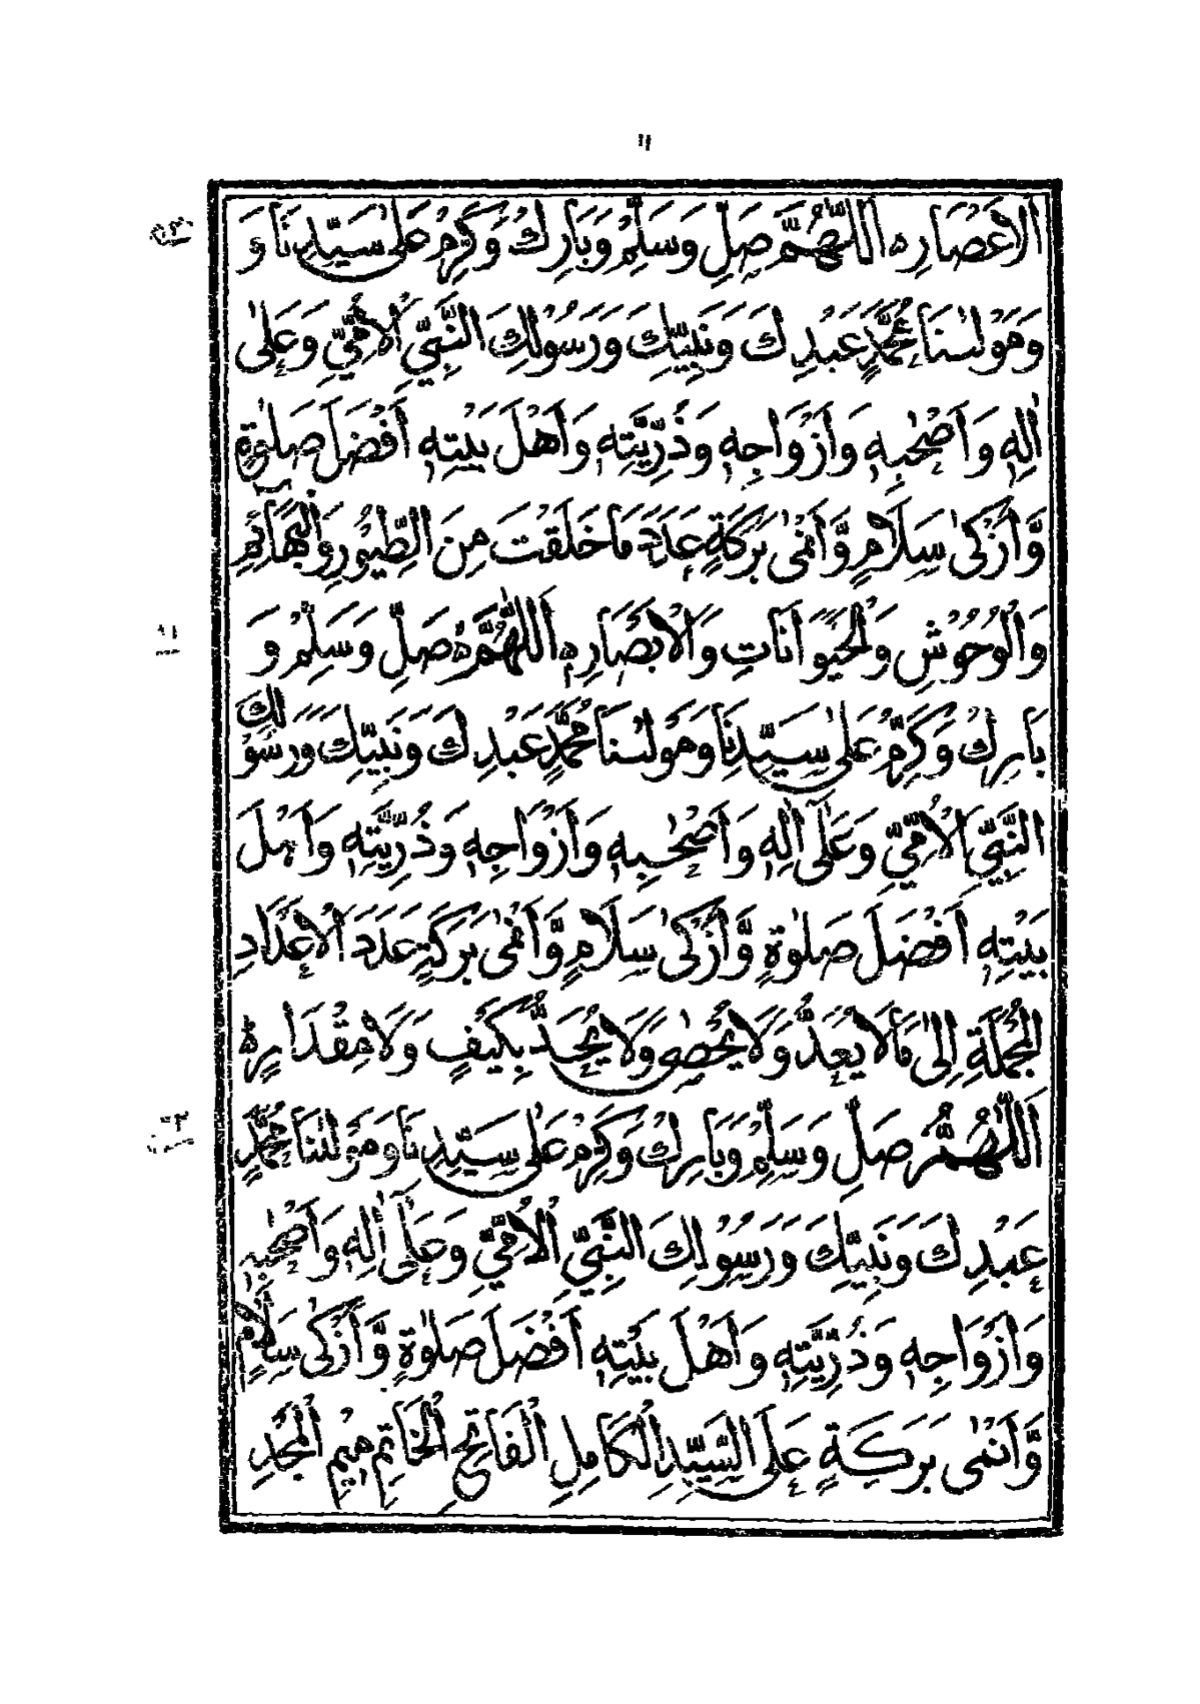 ١١
اَلْاَعْصَارِه اَللّٰهُمَّ صَلِّ وَسَلِّمْ وَبَارِكْ وَكَرِّمْ عَلٰى سَيِّدِنَا وَ
وَمَوْلٰىنَا مُحَمَّدٍ عَبْدِكَ وَنَبِيِّكَ وَرَسُوْلِكَ النَّبِيِّ الْاُمِّيِّ وَعَلٰى
اٰلِهٖ وَاَصْحٰبِهٖ وَاَزْوَاجِهٖ وَذُرِّيَّتِهٖ وَاَهْلِ بَيْتِهٖ اَفْضَلَ صَلٰوةٍ
وَّاَزْكٰى سَلَامٍ وَّاَنْمٰى بَرَكَةٍ عَدَدَ مَا خَلَقْتَ مِنَ الطُّيُوْرِ وَالْبَهَآئِمِ
وَالْوُحُوْشِ وَلْحَيَوَانَاتِ وَالْاَبْصَارِه اَللّٰهُمَّ صَلِّ وَسَلِّمْ وَ
بَارِكْ وَكَرِّمْ عَلٰى سَيِّدِنَا وَمَوْلٰىنَا مُحَمَّدٍ عَبْدِكَ وَنَبِيِّكَ وَرَسُوْلِكَ
النَّبِيِّ الْاُمِّيِّ وَعَلٰٓى اٰلِهٖ وَاَصْحٰبِهٖ وَاَزْوَاجِهٖ وَذُرِّيَّتِهٖ وَاَهْلِ
بَيْتِهٖ اَفْضَلَ صَلٰوةٍ وَّاَزْكٰى سَلَامٍ وَّاَنْمٰى بَرَكَةٍ عَدَدَ الْاَعْدَادِ
الْجُمْلَةِ اِلٰى مَالَا يُعَدُّ وَلَا يُحْصٰى وَلَا يُحَدُّ بِكَيْفٍ وَلَا مِقْدَارٍه
اَللّٰهُمَّ صَلِّ وَسَلِّمْ وَبَارِكْ وَكَرِّمْ عَلٰى سَيِّدِنَا وَمَوْلٰىنَا مُحَمَّدٍ
عَبْدِكَ وَنَبِيِّكَ وَرَسُوْلِكَ النَّبِيِّ الْاُمِّيِّ وَعَلٰٓى اٰلِهٖ وَاَصْحٰبِهٖ
وَاَزْوَاجِهٖ وَذُرِّيَّتِهٖ وَاَهْلِ بَيْتِهٖ اَفْضَلَ صَلٰوةٍ وَّاَزْكٰى سَلَامٍ
وَّاَنْمٰى بَرَكَةٍ عَلَى السَّيِّدِ الْكَامِلِ الْفَاتِحِ الْخَاتِمِ مِيْمِ الْمَجْدِ